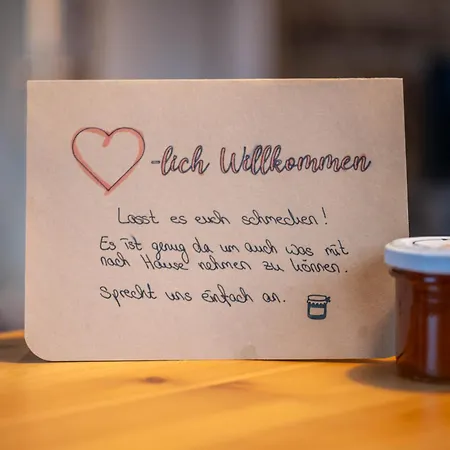 -lich Willkommen
Lasst es euch schmecken!
Es ist genug da um auch was mit
nach Hause nehmen zu können.
Sprecht uns einfach an.